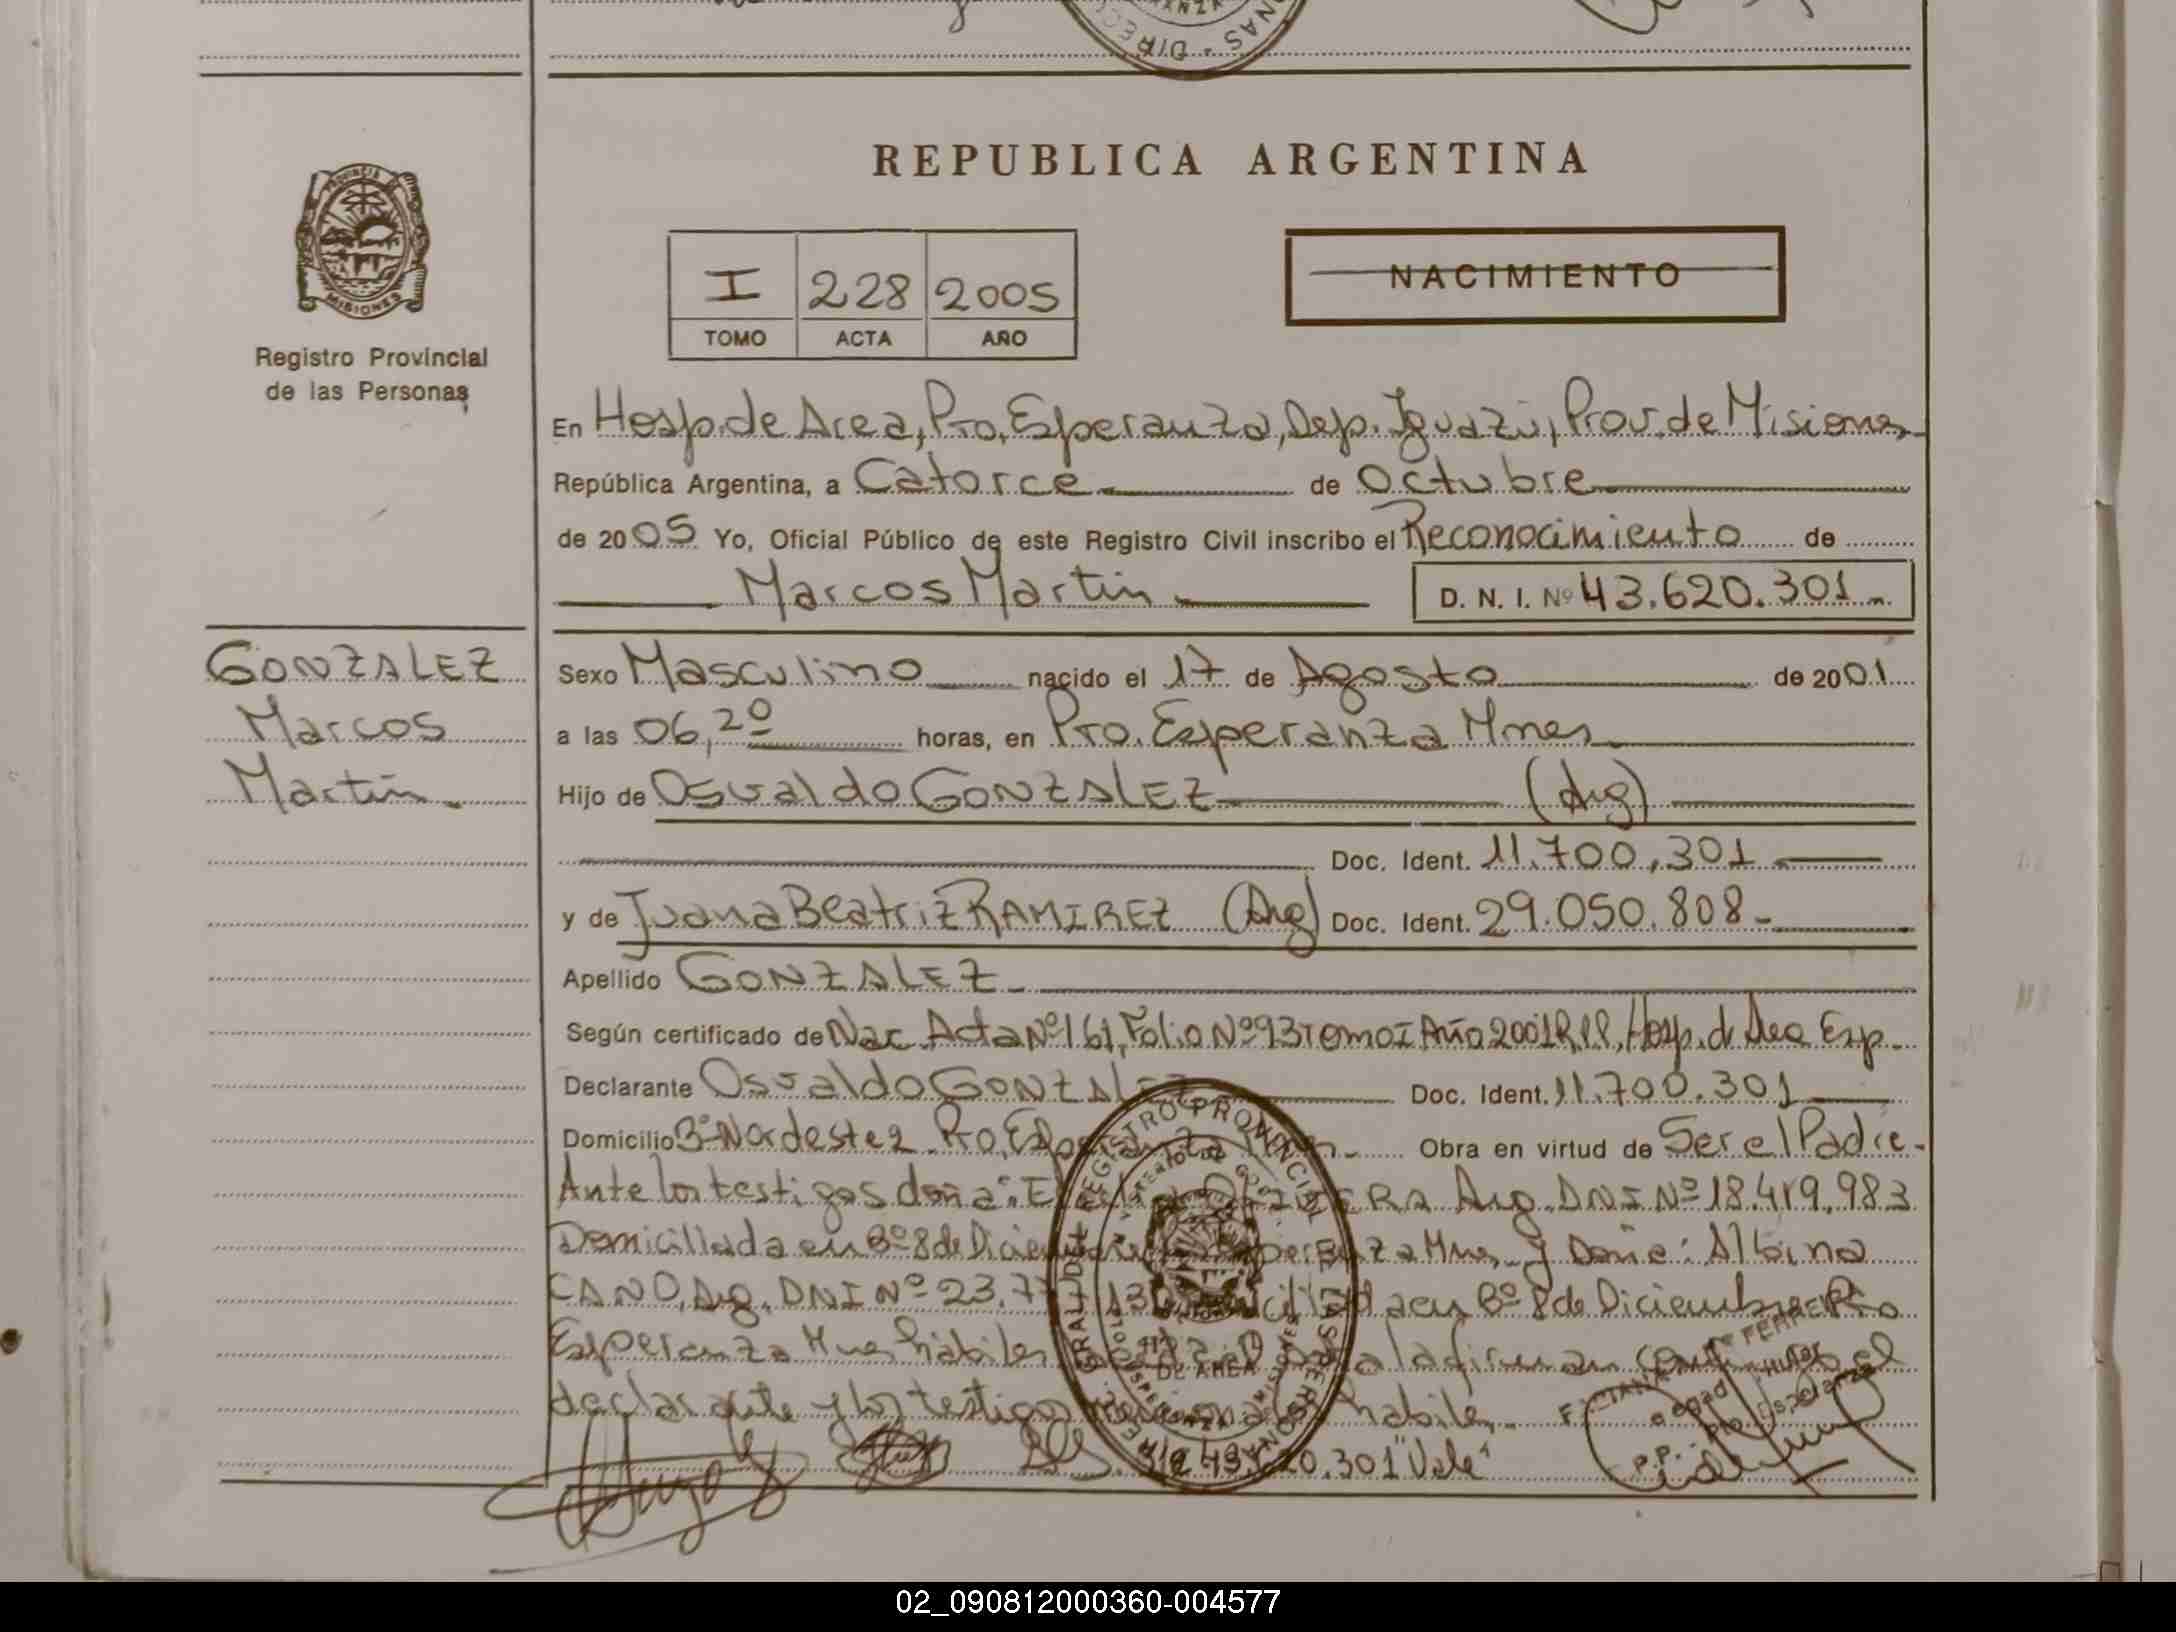 REPUBLICA ARGENTINA
PROVINCIA DE
MISIONES
Registro Provincial
de las Personas
I 228 2005
TOMO ACTA AÑO
NACIMIENTO
En Hosp. de Area, Pto. Esperanza, Dep. Iguazú, Prov. de Misiones
República Argentina, a Catorce de Octubre
de 2005 Yo, Oficial Público de este Registro Civil inscribo el Reconocimiento de
Marcos Martin D. N. I. Nº 43.620.301
GONZALEZ
Marcos
Martin
Sexo Masculino nacido el 17 de Agosto de 2001
a las 06,20 horas, en Pto. Esperanza Mnes
Hijo de Osvaldo GONZALEZ (Arg)
Doc. Ident. 11.700.301
y de Juana Beatriz RAMIREZ (Arg) Doc. Ident. 29.050.808
Apellido GONZALEZ
Según certificado de Nac. Acta Nº 161, Folio Nº 93 Tomo I Año 2001 R.P.P. Hosp. d Area Esp.
Declarante Osvaldo GONZALEZ Doc. Ident. 11.700.301
Domicilio Bº Nordeste 2 Pto. Esperanza Obra en virtud de Ser el Padre
Ante los testigos doña: Arg. DNI Nº 18.419.983
Domicillada en Bº 8 de Diciembre Esperanza Mnes y Doña: Albina
CANO, Arg. DNI Nº 23.7 en Bº 8 de Diciembre Pto
Esperanza Mnes hábiles la firman el
declarante y los testigos hábiles
43.620.301 "Vale"
REGISTRO PROVINCIAL DE LAS PERSONAS
02_090812000360-004577